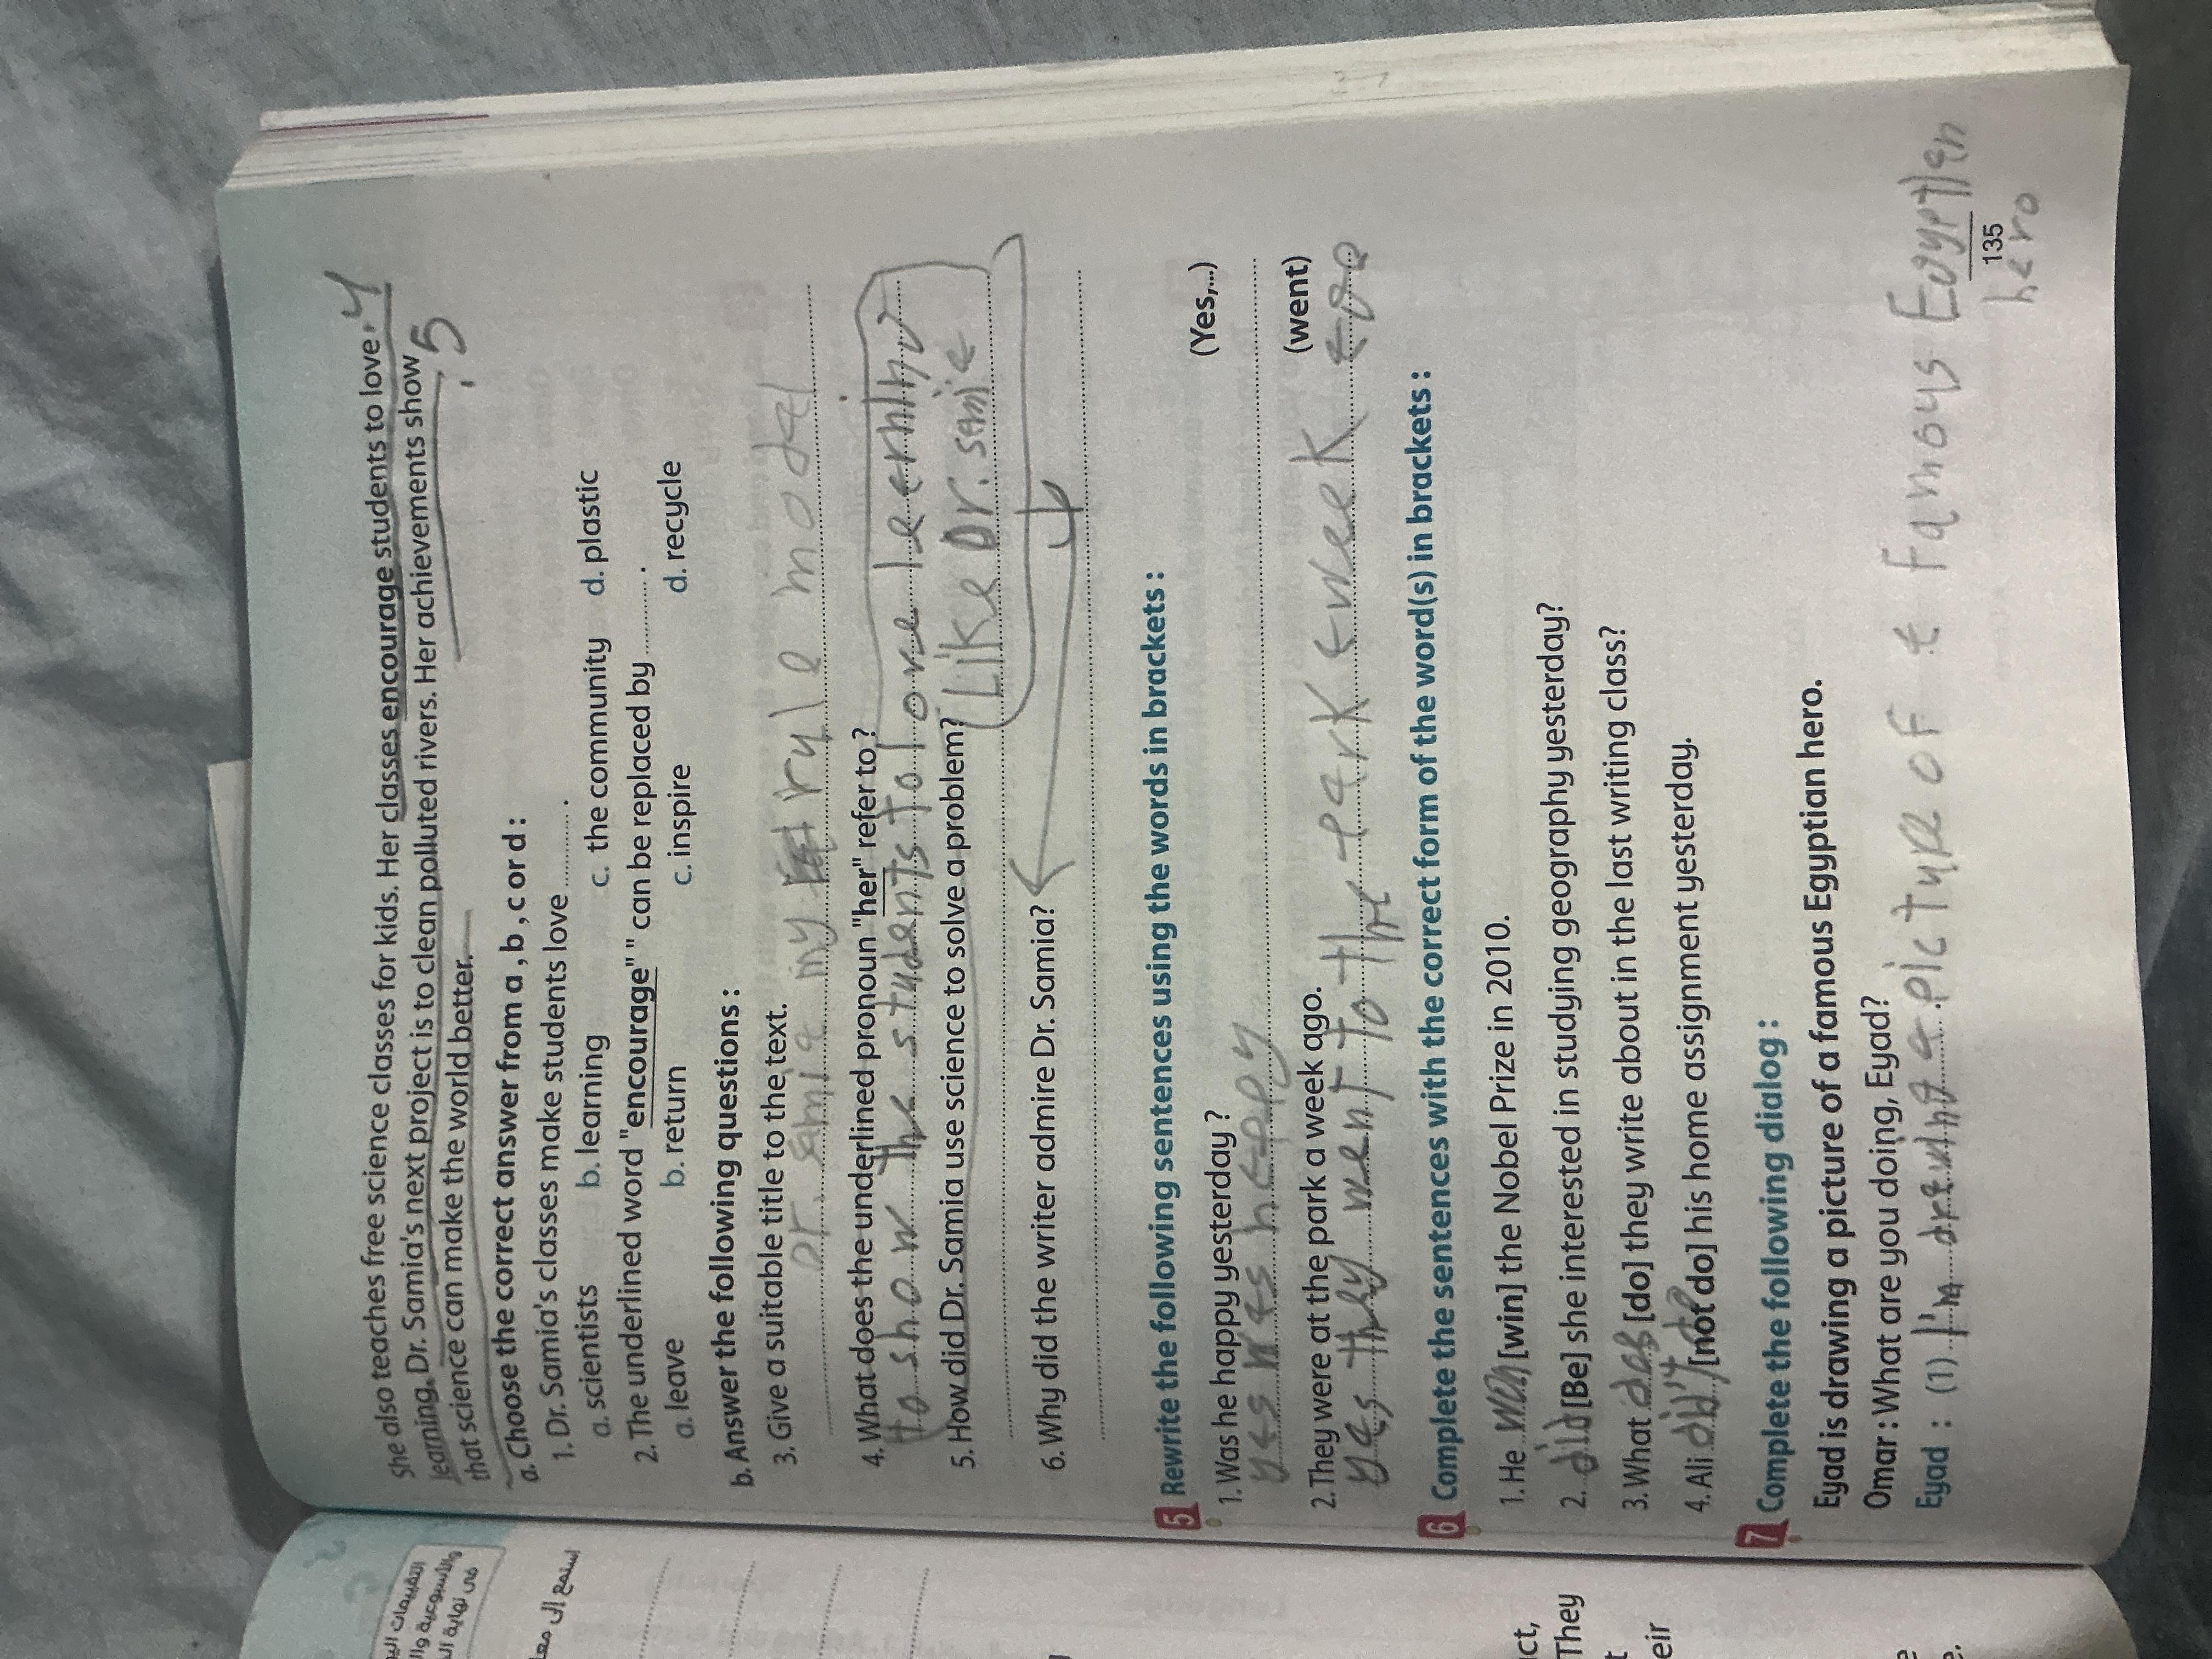 She also teaches free science classes for kids. Her classes encourage students to love .4
learning. Dr. Samia's next project is to clean polluted rivers. Her achievements show .5
that science can make the world better.
a. Choose the correct answer from a , b , c or d :
1. Dr. Samia's classes make students love .......... .
a. scientists b. learning c. the community d. plastic
2. The underlined word "encourage" can be replaced by .......... .
a. leave b. return c. inspire d. recycle
b. Answer the following questions :
3. Give a suitable title to the text.
Dr. samia my rule model
4. What does the underlined pronoun "her" refer to ?
to show the students to love
5. How did Dr. Samia use science to solve a problem?
Like Dr.
6. Why did the writer admire Dr. Samia?
5 Rewrite the following sentences using the words in brackets :
1. Was he happy yesterday ? (Yes,...)
yes was happy
2. They were at the park a week ago. (went)
yes they went to the park a week
6 Complete the sentences with the correct form of the word(s) in brackets :
1. He [win] the Nobel Prize in 2010.
2. did [Be] she interested in studying geography yesterday?
3. What [do] they write about in the last writing class?
4. Ali [not do] his home assignment yesterday.
7 Complete the following dialog :
Eyad is drawing a picture of a famous Egyptian hero.
Omar : What are you doing, Eyad?
Eyad : (1) I'm a picture of a famous Egyptian
135
hero